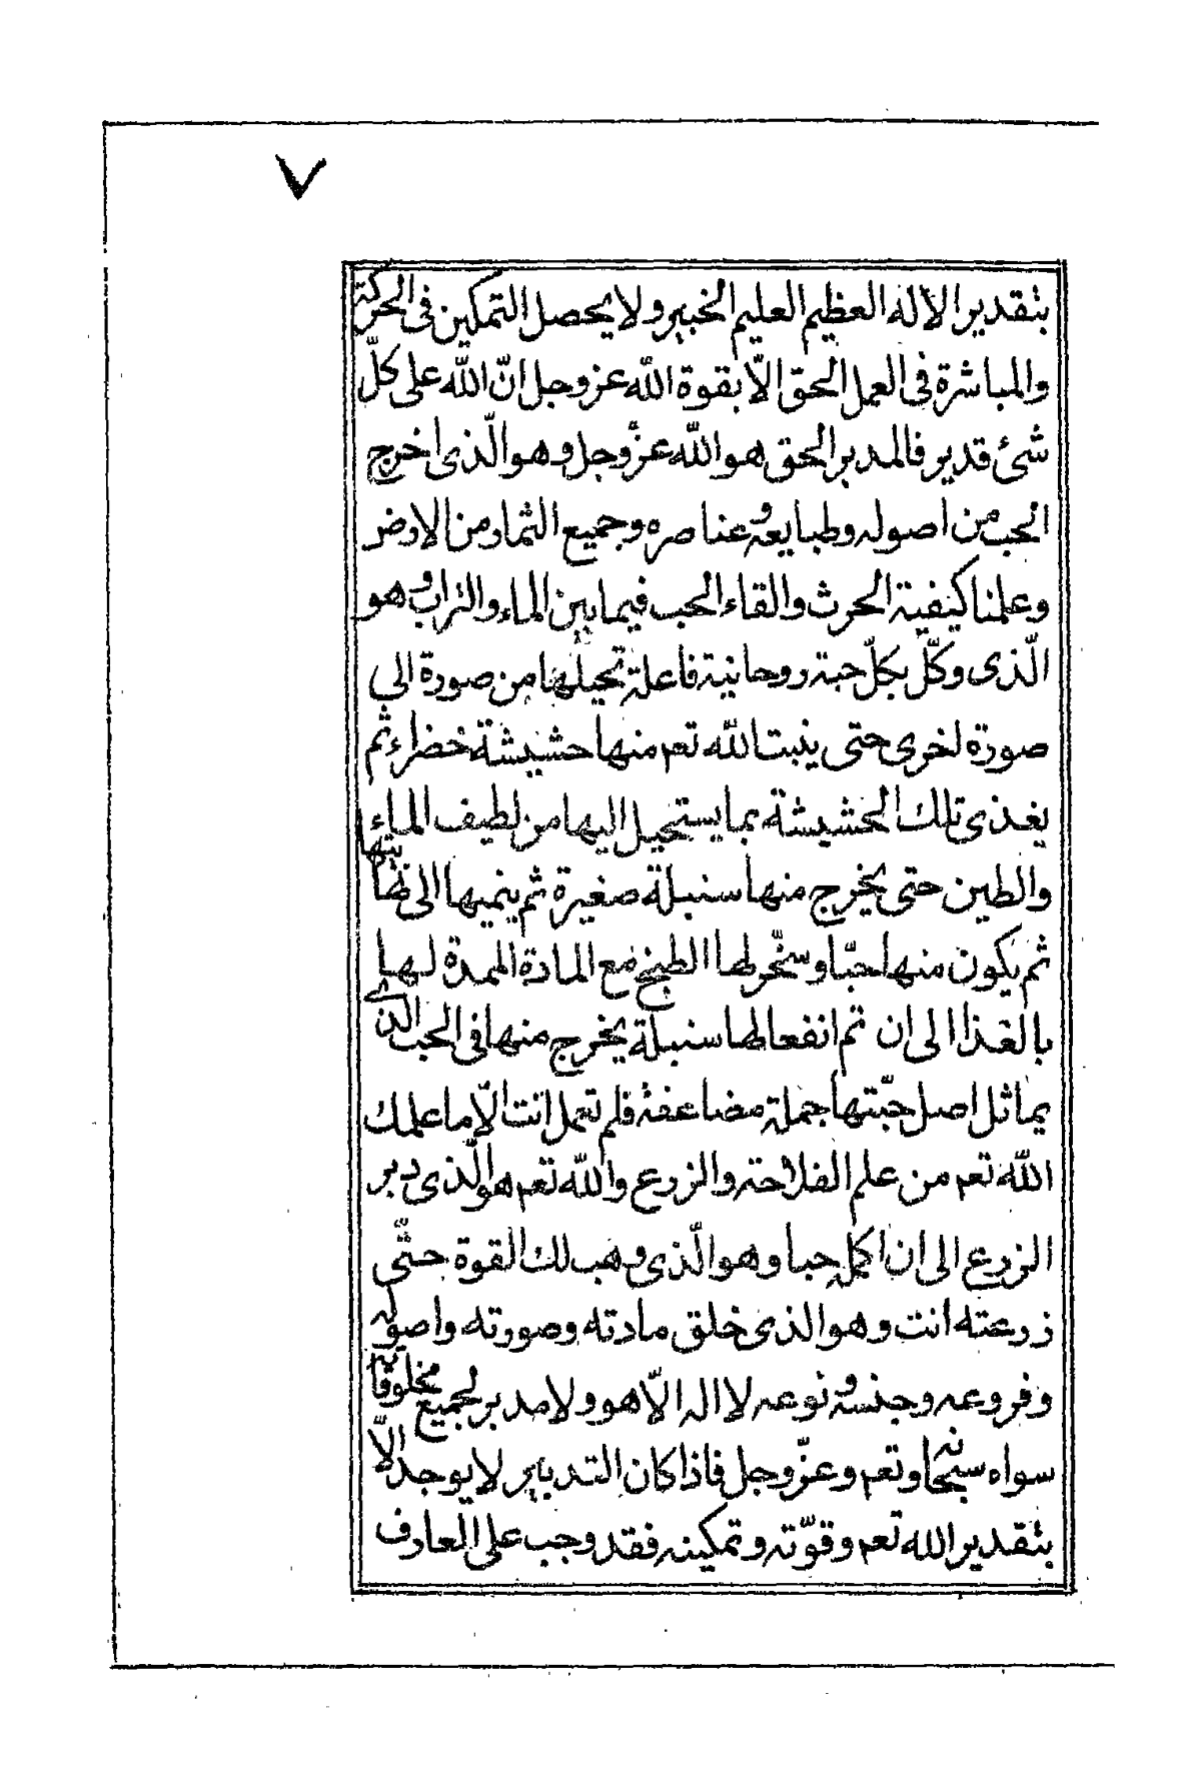 ٧
بتقدير الاله العظيم العليم الخبير ولا يحصل التمكين فى الحركة
والمباشرة فى العمل الحق الّا بقوة اللّه عز وجل انّ اللّه على كلّ
شئ قدير فالمدبر الحق هو اللّه عزّ وجل وهو الّذى اخرج
الحب من اصوله وطبايعه وعناصره وجميع الثمار من الارض
وعلمنا كيفية الحرث والقاء الحب فيما بين الماء والتراب وهو
الّذى وكّل بكلّ حبة روحانية فاعلة تحيلها من صورة الى
صورة اخرى حتى ينبت اللّه تعم منها حشيشة خضراء ثم
يغذى تلك الحشيشة بما يستحيل اليها من لطيف الماء
والطين حتى يخرج منها سنبلة صغيرة ثم ينميها الى نهايتها
ثم يكون منها حبّا وسخّر لها الطبخ مع المادة الممدة لها
بالغذا الى ان تم انفعالها سنبلة يخرج منها فى الحب الذى
يماثل اصل حبّتها جملة مضاعفة فلم تعمل انت الّا ما علمك
اللّه تعم من علم الفلاحة والزرع واللّه تعم هو الّذى دبر
الزرع الى ان اكمله حبا وهو الّذى وهب لك القوة حتّى
زرعته انت وهو الذى خلق مادته وصورته واصوله
وفروعه وجنسه ونوعه لا اله الّا هو ولا مدبر لجميع مخلوقاته
سواه سبحانه وتعم وعزّ وجل فاذا كان التدبير لا يوجد الّا
بتقدير اللّه تعم وقوّته وتمكينه فقد وجب على العارف